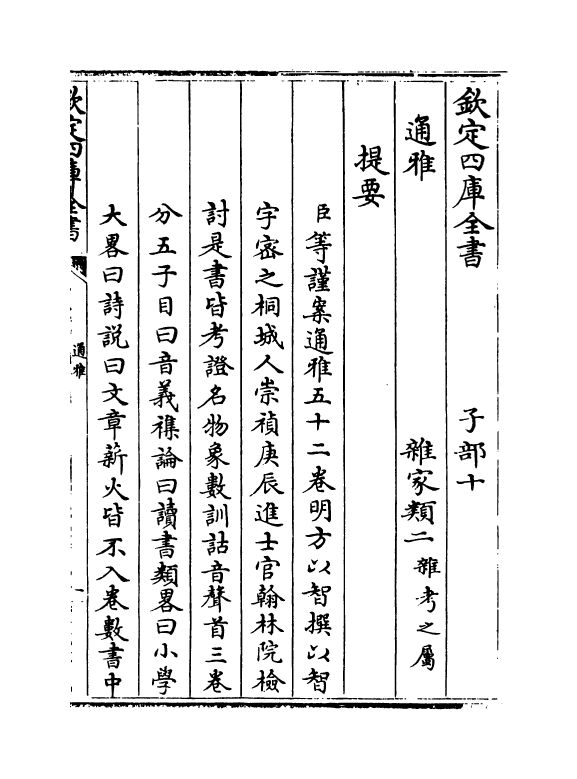 欽定四庫全書　子部十
通雅　雜家類二雜考之屬
提要
臣等謹案通雅五十二卷明方以智撰以智
字宻之桐城人崇禎庚辰進士官翰林院檢
討是書皆考證名物象數訓詁音聲首三卷
分五子目曰音義襍論曰讀書類畧曰小學
大畧曰詩説曰文章薪火皆不入卷數書中
欽定四庫全書
通雅